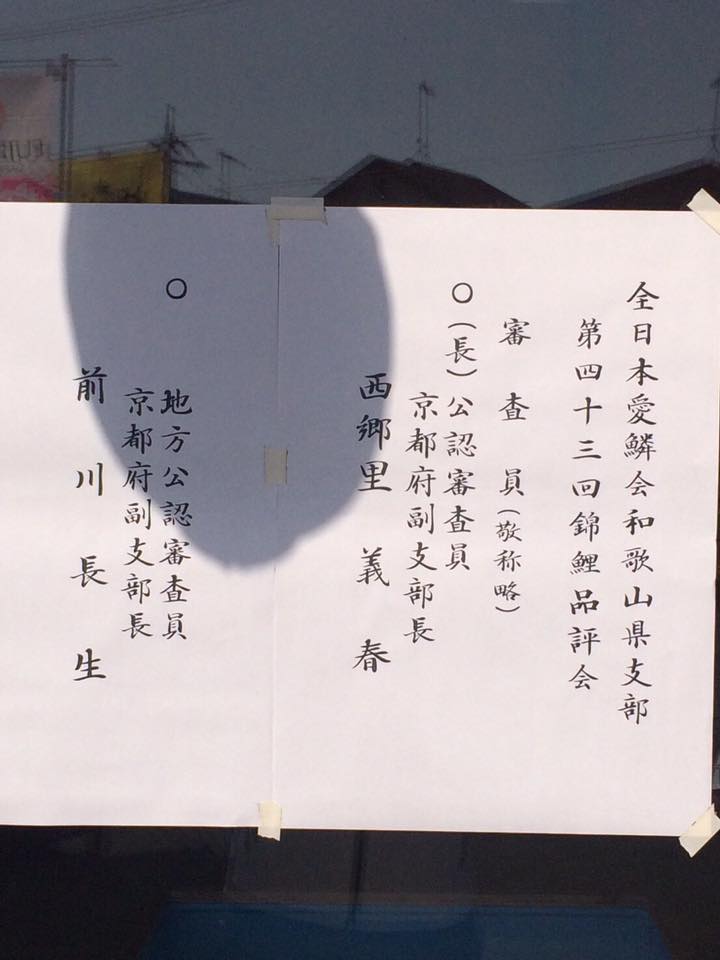 全日本愛鱗会和歌山県支部
第四十三回錦鯉品評会
審査員(敬称略)
〇(長)公認審査員
京都府副支部長
西郷里義春
〇
地方公認審査員
京都府副支部長
前川長生